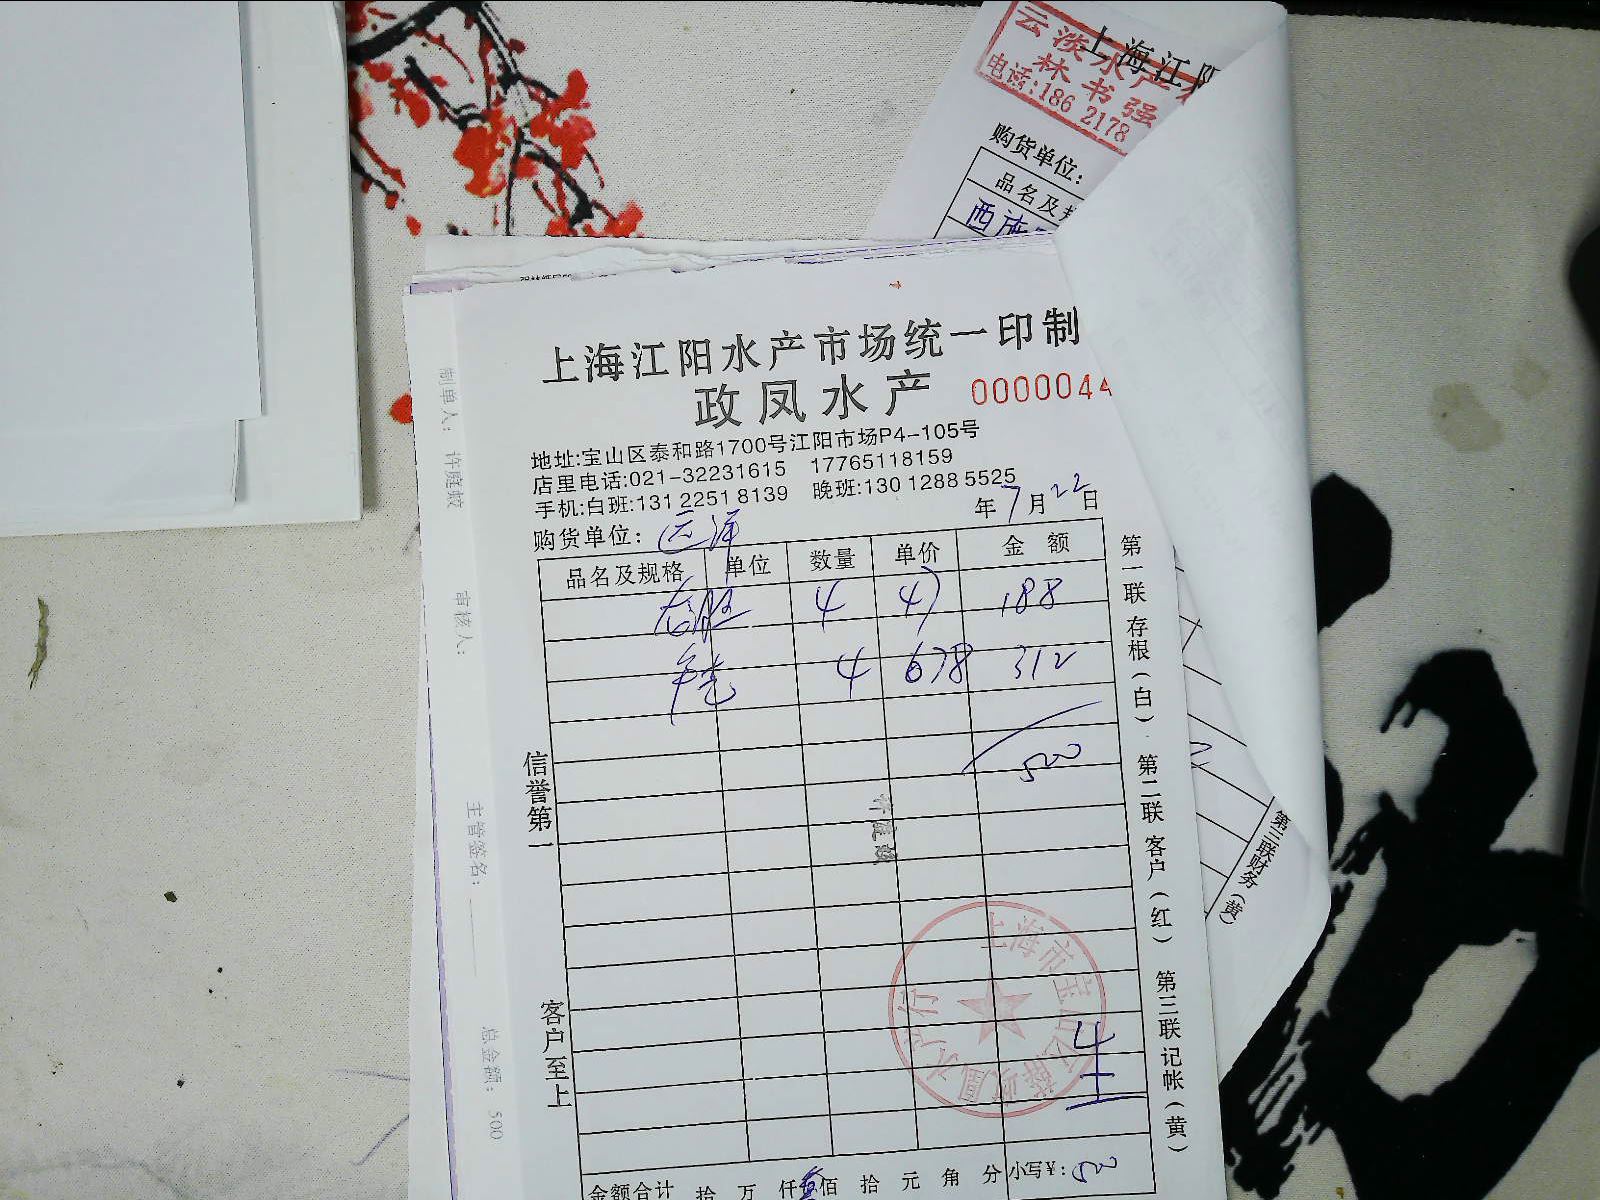 云淡水产
林书强
电话:186 2178
上海江阳
购货单位:
品名及规
西施
上海江阳水产市场统一印制
政凤水产 0000044
地址:宝山区泰和路1700号江阳市场P4-105号
店里电话:021-32231615 17765118159
手机:白班:131 2251 8139 晚班:130 1288 5525
年7月22日
购货单位: 云海
品名及规格 单位 数量 单价 金额
4 47 188
4 678 312
500
信誉第一
客户至上
第一联存根(白) 第二联客户(红) 第三联记帐(黄)
金额合计 拾 万 仟伍佰 拾 元 角 分 小写¥:500
制单人: 许庭蛟
审核人:
主管签名:
总金额: 500
许庭蛟
第三联财务(黄)